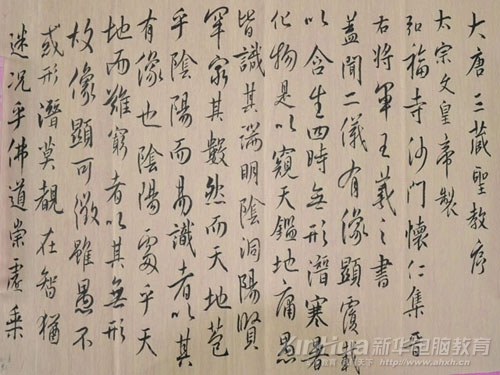 大唐三藏聖教序
太宗文皇帝製
弘福寺沙門懷仁集晉
右將軍王羲之書
蓋聞二儀有像顯覆載
以含生四時無形潛寒暑
化物是以窺天鑑地庸愚
皆識其端明陰洞陽賢
罕窮其數然而天地苞
乎陰陽而易識者以其
有像也陰陽處乎天
地而難窮者以其無形
故像顯可徵雖愚不
或形潛莫覩在智猶
迷況乎佛道崇虛乘
XinHua新华电脑教育
www.ahxh.cn